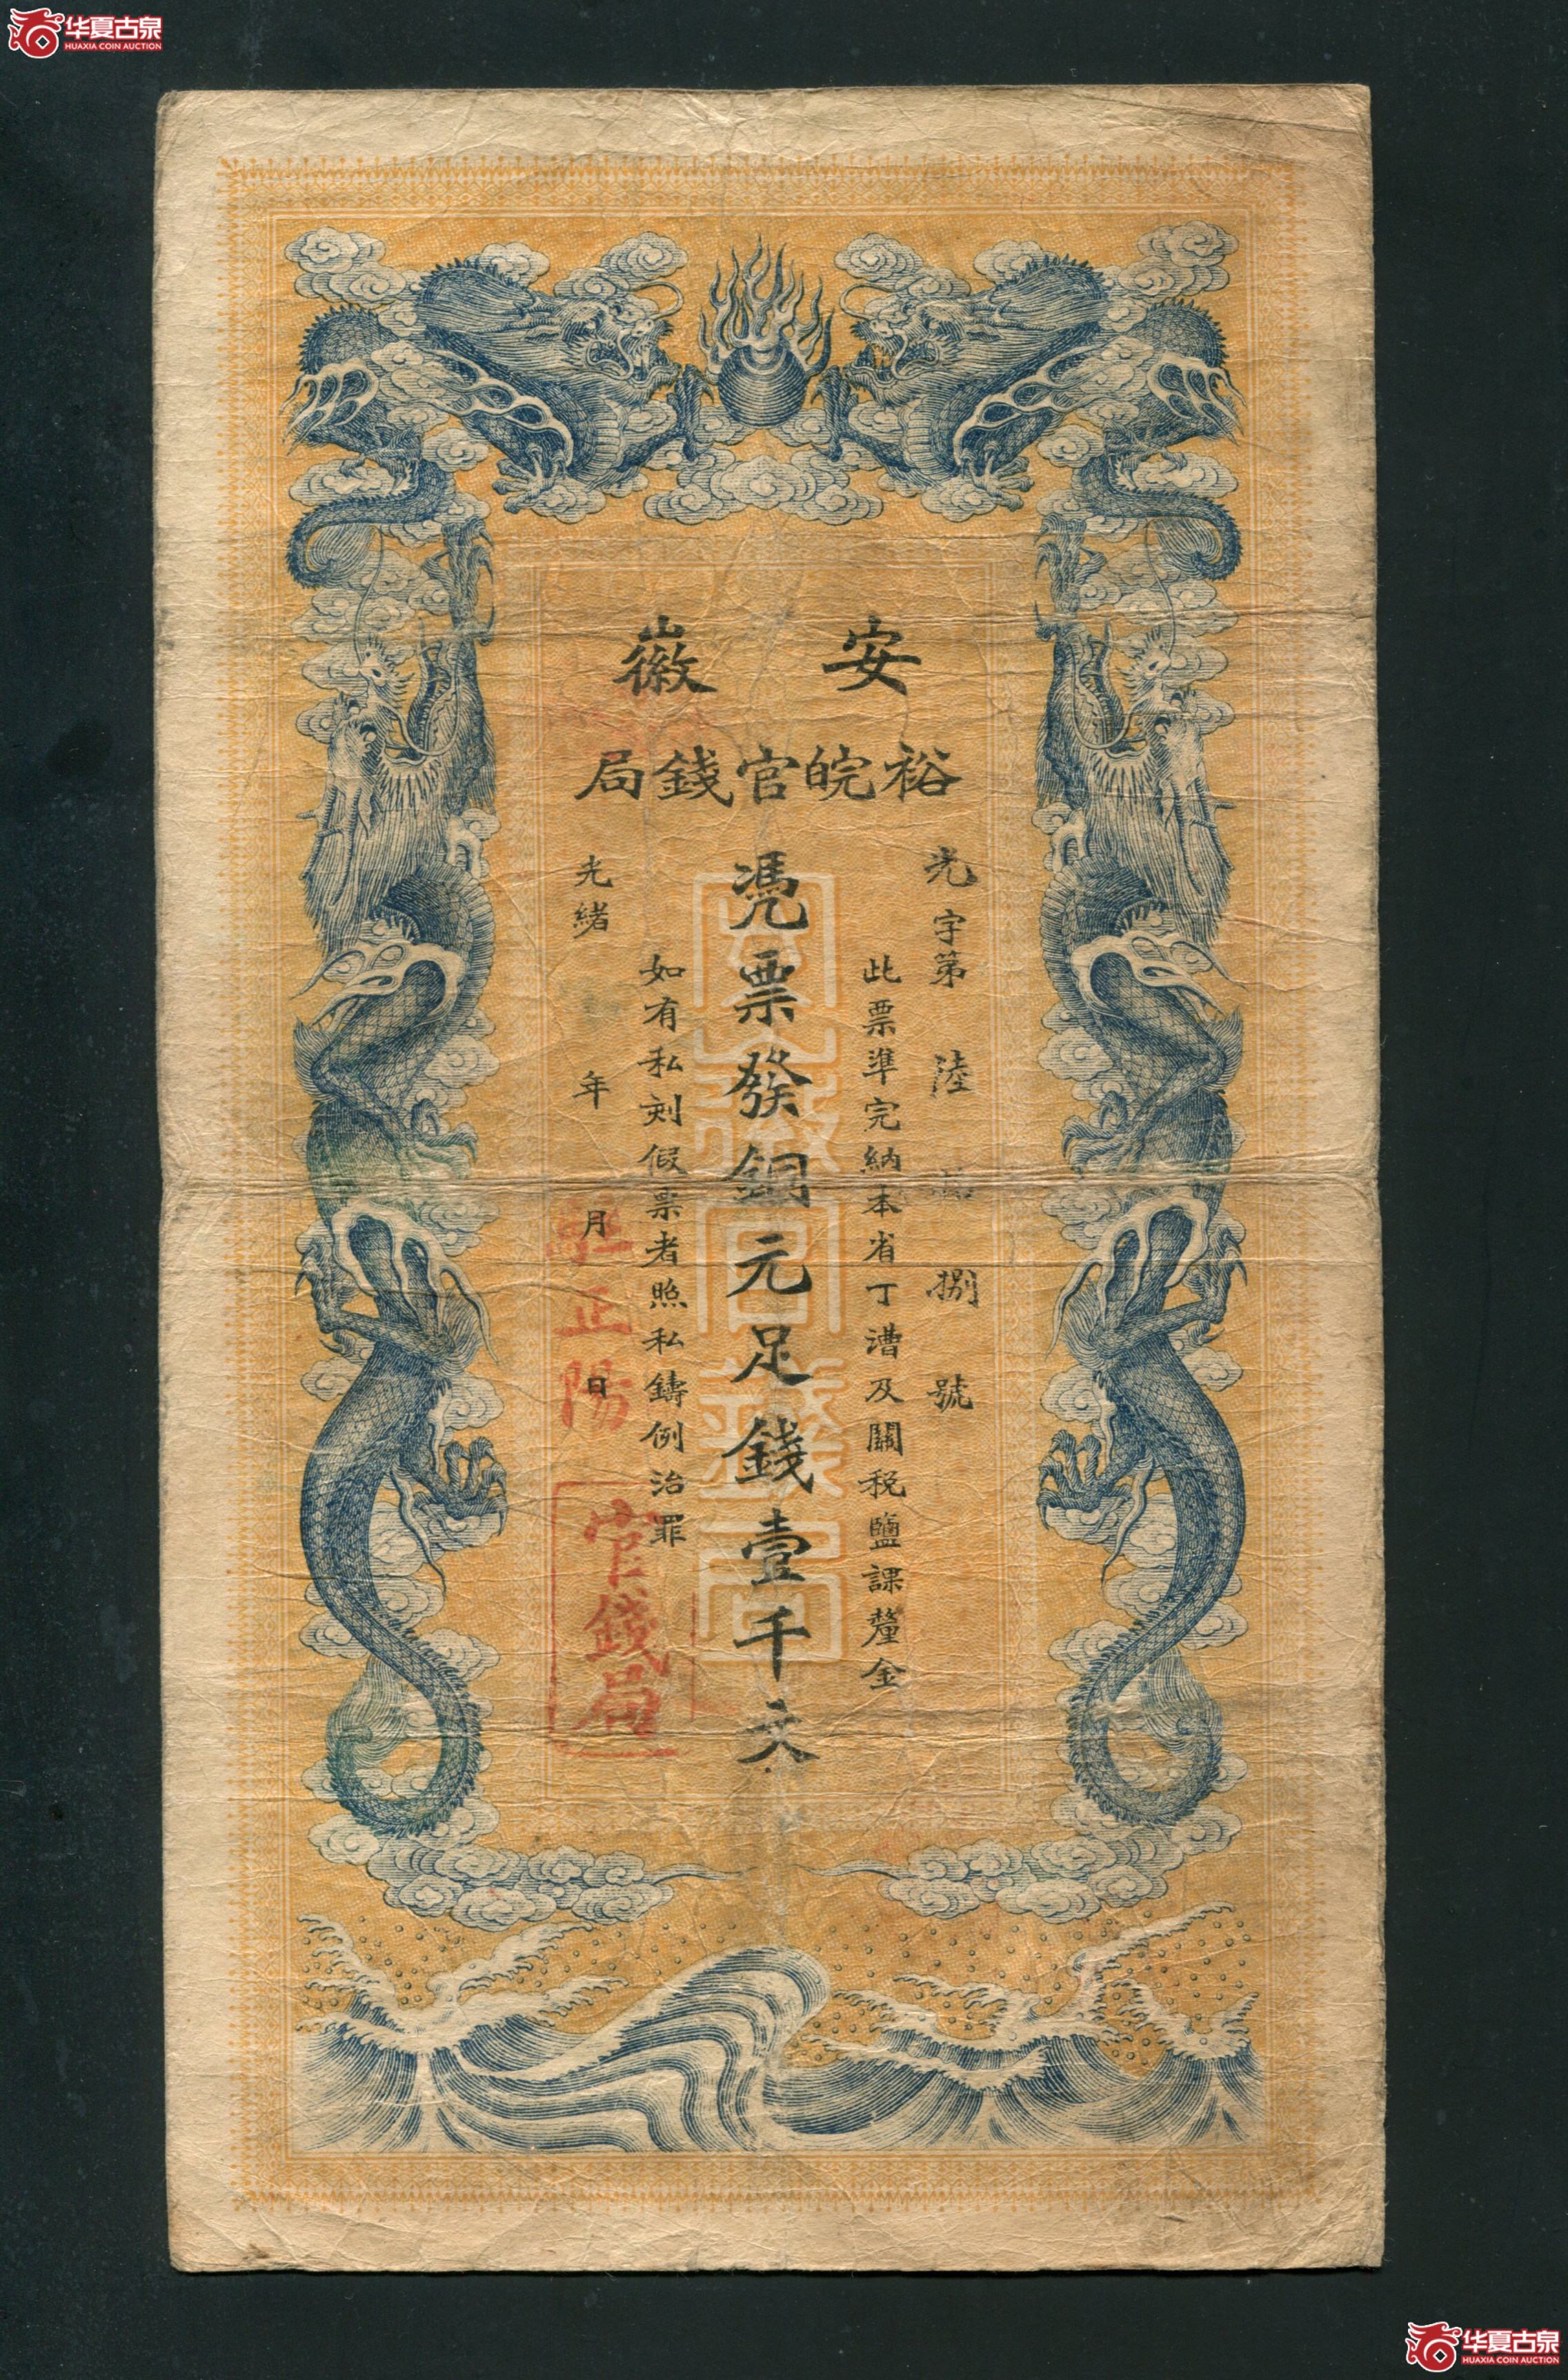 华夏古泉
HUAXIA COIN AUCTION
安徽
裕皖官錢局
光字第 陸 捌 號
此票準完納本省丁漕及關税鹽課釐金
凴票發銅元足錢壹千文
如有私刻假票者照私鑄例治罪
光緒 年 月 日
正陽
官錢局
安徽官錢局
华夏古泉
HUAXIA COIN AUCTION